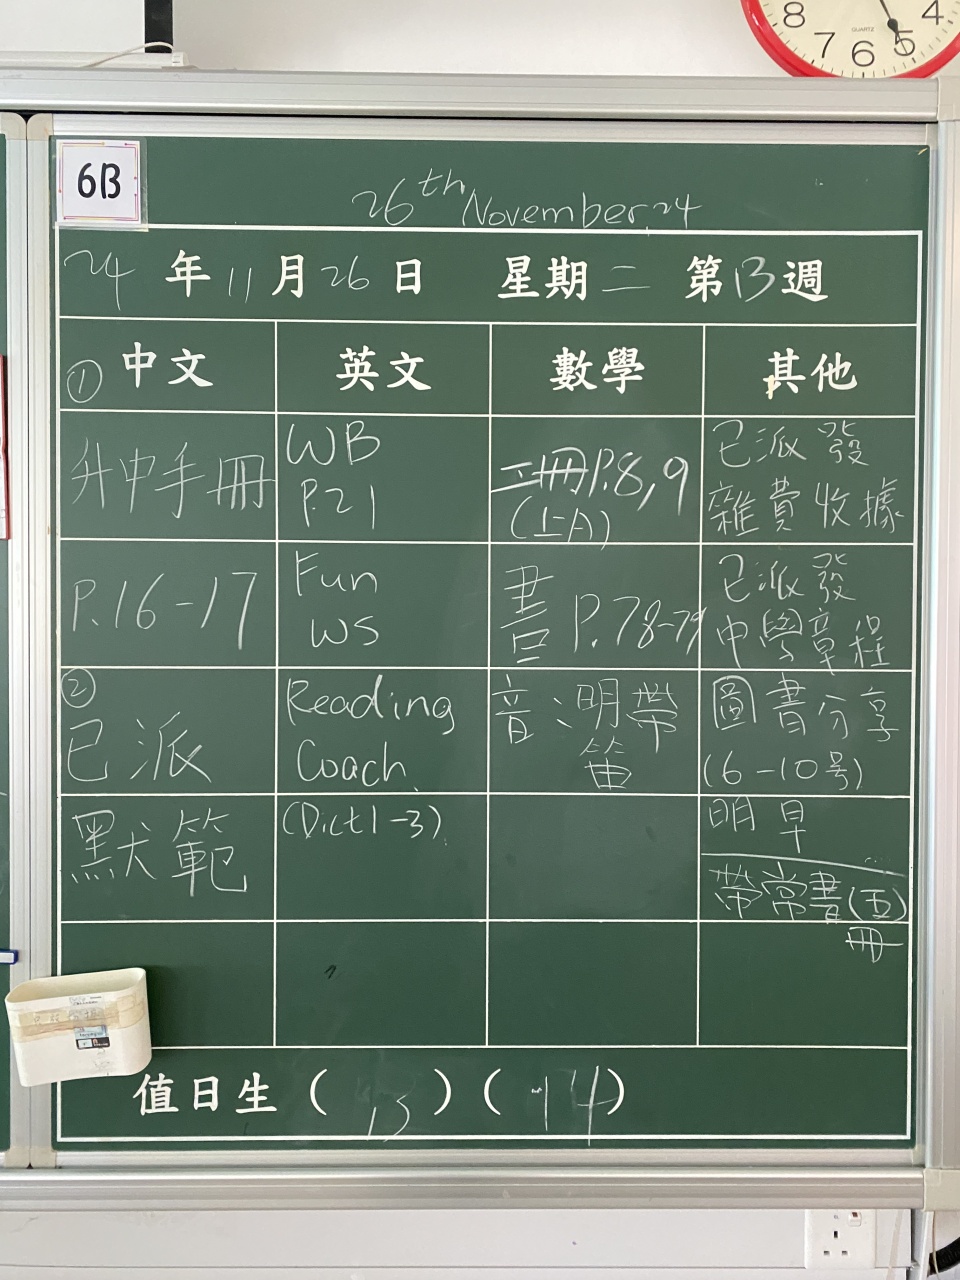 8 7 6 5 4
QUARTZ
6B
26th November, 24
24 年 11 月 26 日 星期 二 第 13 週
① 中文
升中手冊
P.16-17
② 已派
默範
英文
WB
P.21
Fun
WS
Reading
Coach
(Dict 1-3)
數學
工冊P.8,9
(上A)
書 P.78-79
音:明帶
笛
其他
已派發
雜費收據
已派發
中學章程
圖書分享
(6-10号)
明早
帶常書(五)
冊
值日生 ( 13 ) ( 14 )